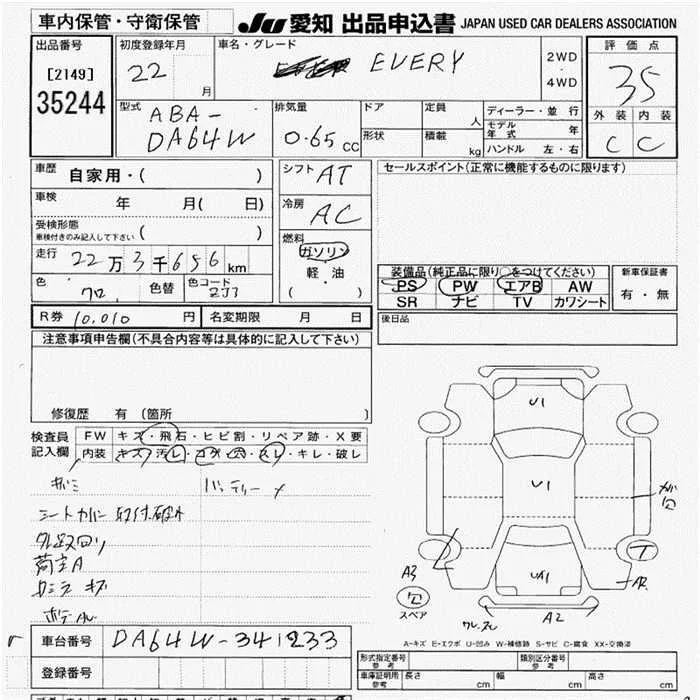 車内保管・守衛保管
JU 愛知 出品申込書 JAPAN USED CAR DEALERS ASSOCIATION
出品番号
[2149]
35244
初度登録年月
22 月
車名・グレード
EVERY
2WD
・
4WD
評価点
35
外装 内装
C C
型式
ABA-
DA64W
排気量
0.65 cc
ドア
定員 人
形状
積載 kg
ディーラー・並行
モデル年式 年
ハンドル 左・右
車歴
自家用・( )
車検
年 月( 日)
受検形態
車検付きのみ記入して下さい ( )
走行
22万3千656km
色
クロ
色替
色コード
ZJ3
シフト AT
冷房 AC
燃料
ガソリン
軽・油
( )
セールスポイント(正常に機能するものに限ります)
装備品(純正品に限り○をつけてください)
PS PW エアB AW
SR ナビ TV カワシート
新車保証書
有・無
R券 10,010 円 名変期限 月 日
後日品
注意事項申告欄(不具合内容等は具体的に記入して下さい)
修復歴 有 (箇所 )
検査員
記入欄
FW キズ・飛石・ヒビ割・リペア跡・X要
内装 キズ・汚レ・コゲ・穴・スレ・キレ・破レ
シートカバー 取付
荷室A
キズ
U1
U1
A3
A2
スペア
車台番号 DA64W-341233
登録番号
A-キズ E-エクボ U-凹み W-補修跡 S-サビ C-腐食 XX-交換済
形式指定番号 参考
類別区分番号 参考
車庫証明用 参考
長さ cm 幅 cm 高さ cm